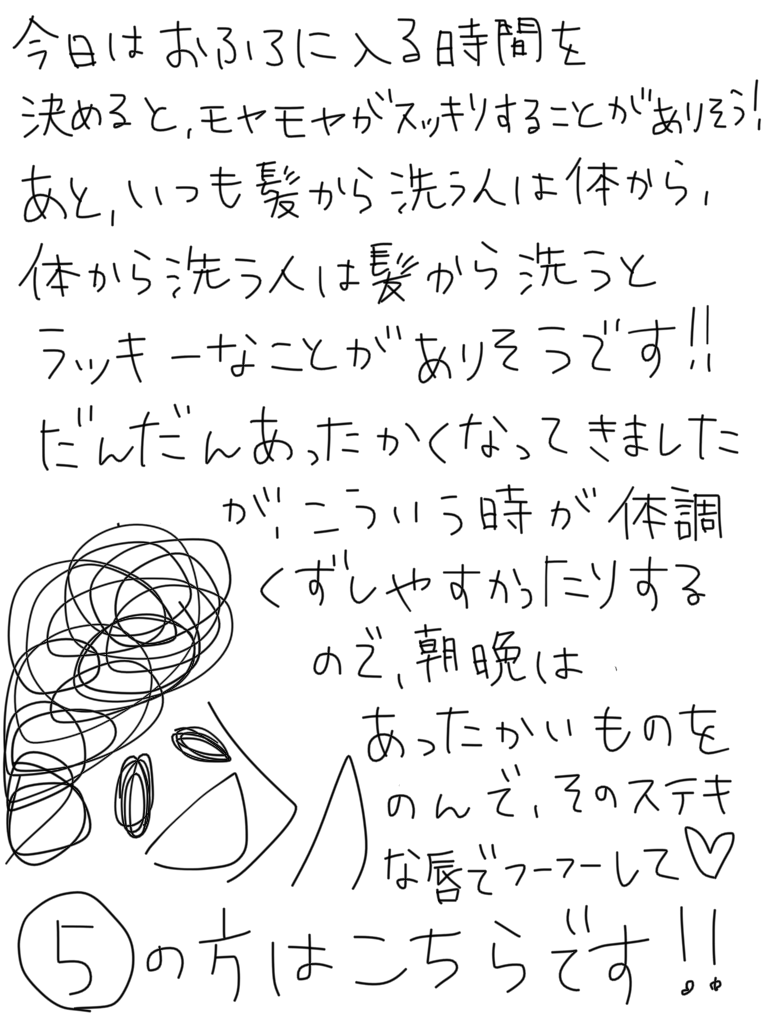 今日はおふろに入る時間を
決めると、モヤモヤがスッキリすることがありそう!
あと、いつも髪から洗う人は体から、
体から洗う人は髪から洗うと
ラッキーなことがありそうです!!
だんだんあったかくなってきました
が、こういう時が体調
くずしやすかったりする
ので、朝晩は
あったかいものを
のんで、そのステキ
な唇でフーフーして♡
⑤の方はこちらです!!